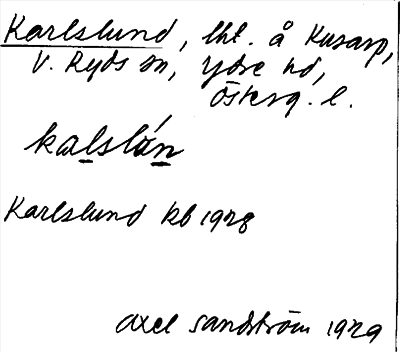 Karlslund, lht. å Kusarp,
V. Ryds sn, Ydre hd,
Österg. l.
kalslón
Karlslund kb 1928
Axel Sandström 1929